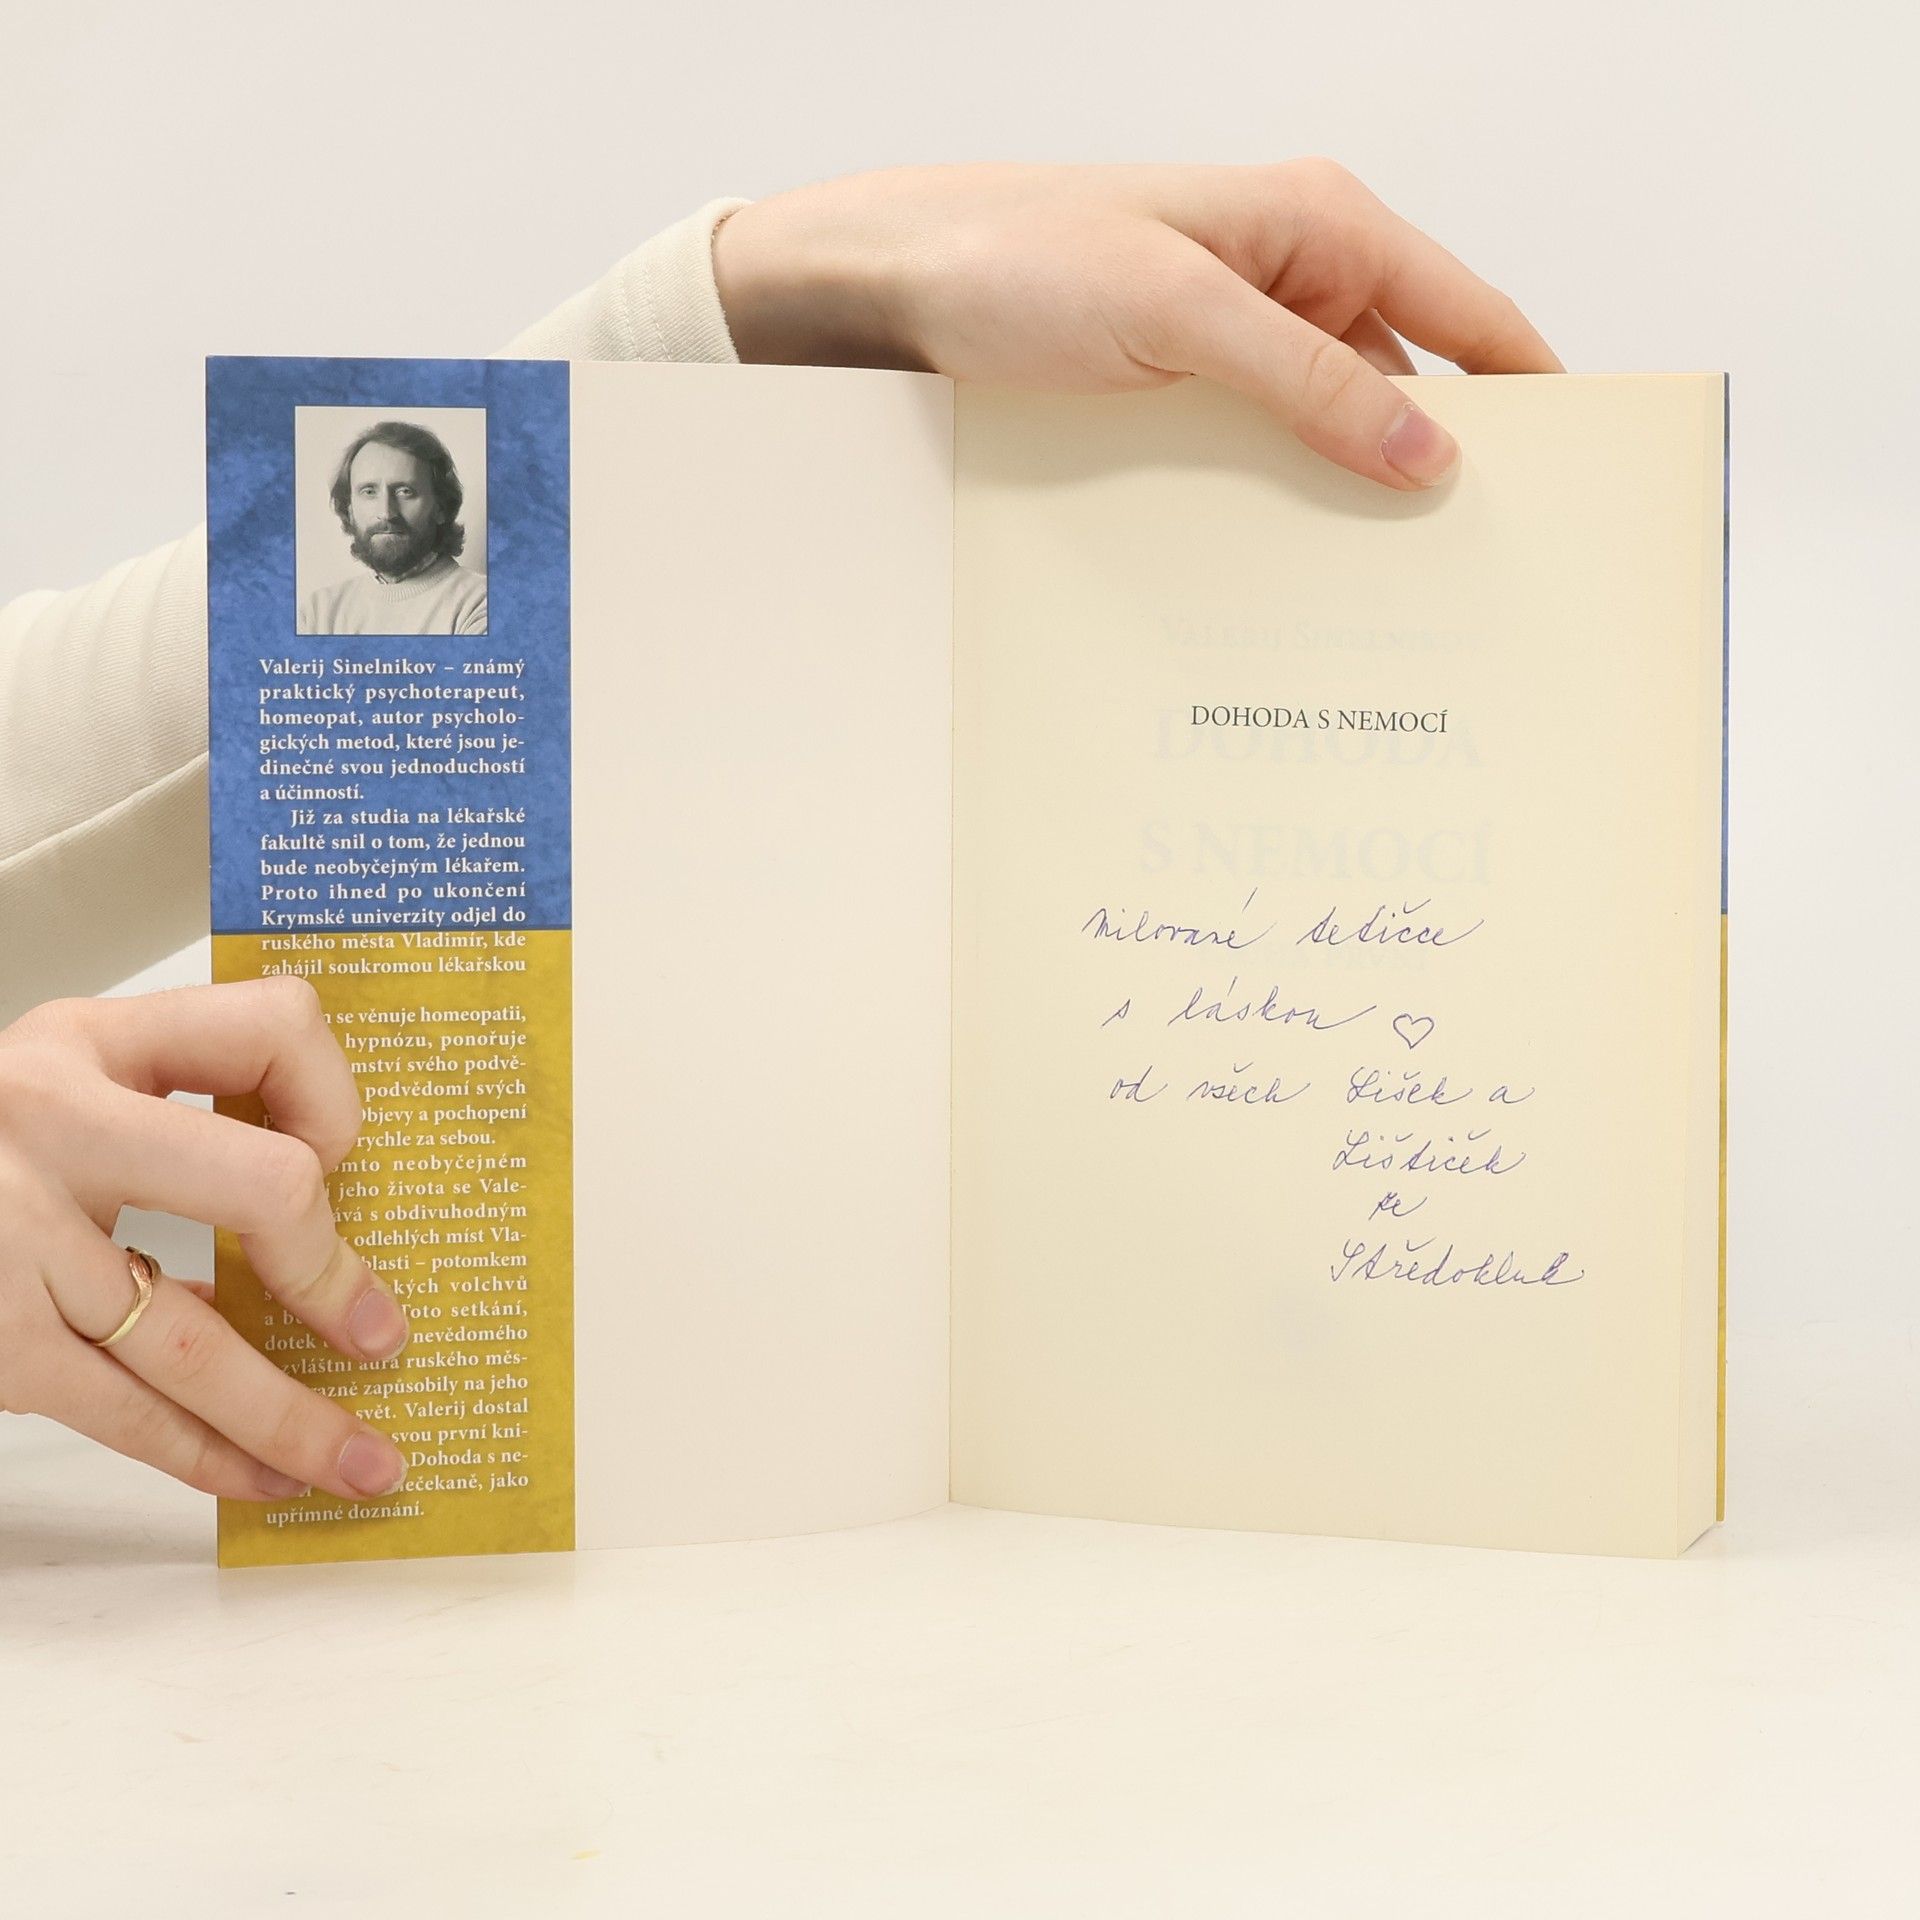 Valerij Sinelnikov – známý
praktický psychoterapeut,
homeopat, autor psycholo-
gických metod, které jsou je-
dinečné svou jednoduchostí
a účinností.
Již za studia na lékařské
fakultě snil o tom, že jednou
bude neobyčejným lékařem.
Proto ihned po ukončení
Krymské univerzity odjel do
ruského města Vladimír, kde
zahájil soukromou lékařskou
se věnuje homeopatii,
hypnózu, ponořuje
svého podvě-
podvědomí svých
a pochopení
rychle za sebou.
neobyčejném
jeho života se Vale-
s obdivuhodným
odlehlých míst Vla-
– potomkem
volchvů
a Toto setkání,
dotek nevědomého
zvláštní aura ruského měs-
zapůsobily na jeho
svět. Valerij dostal
svou první kni-
Dohoda s ne-
jako
upřímné doznání.
VALERIJ SINELNIKOV
DOHODA S NEMOCÍ
DOHODA
S NEMOCÍ
Milované tetičce
s láskou ♡
od všech Lišek a
Lištiček
ze
Středokluk